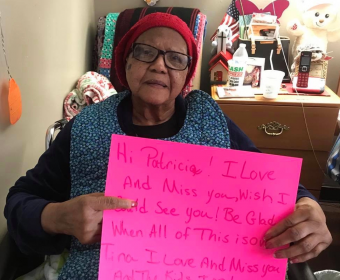 Hi Patricia! I Love
And Miss you, Wish I
Could See you! Be Glad
When All of This is o
Tina I Love And Miss you
And The Kids